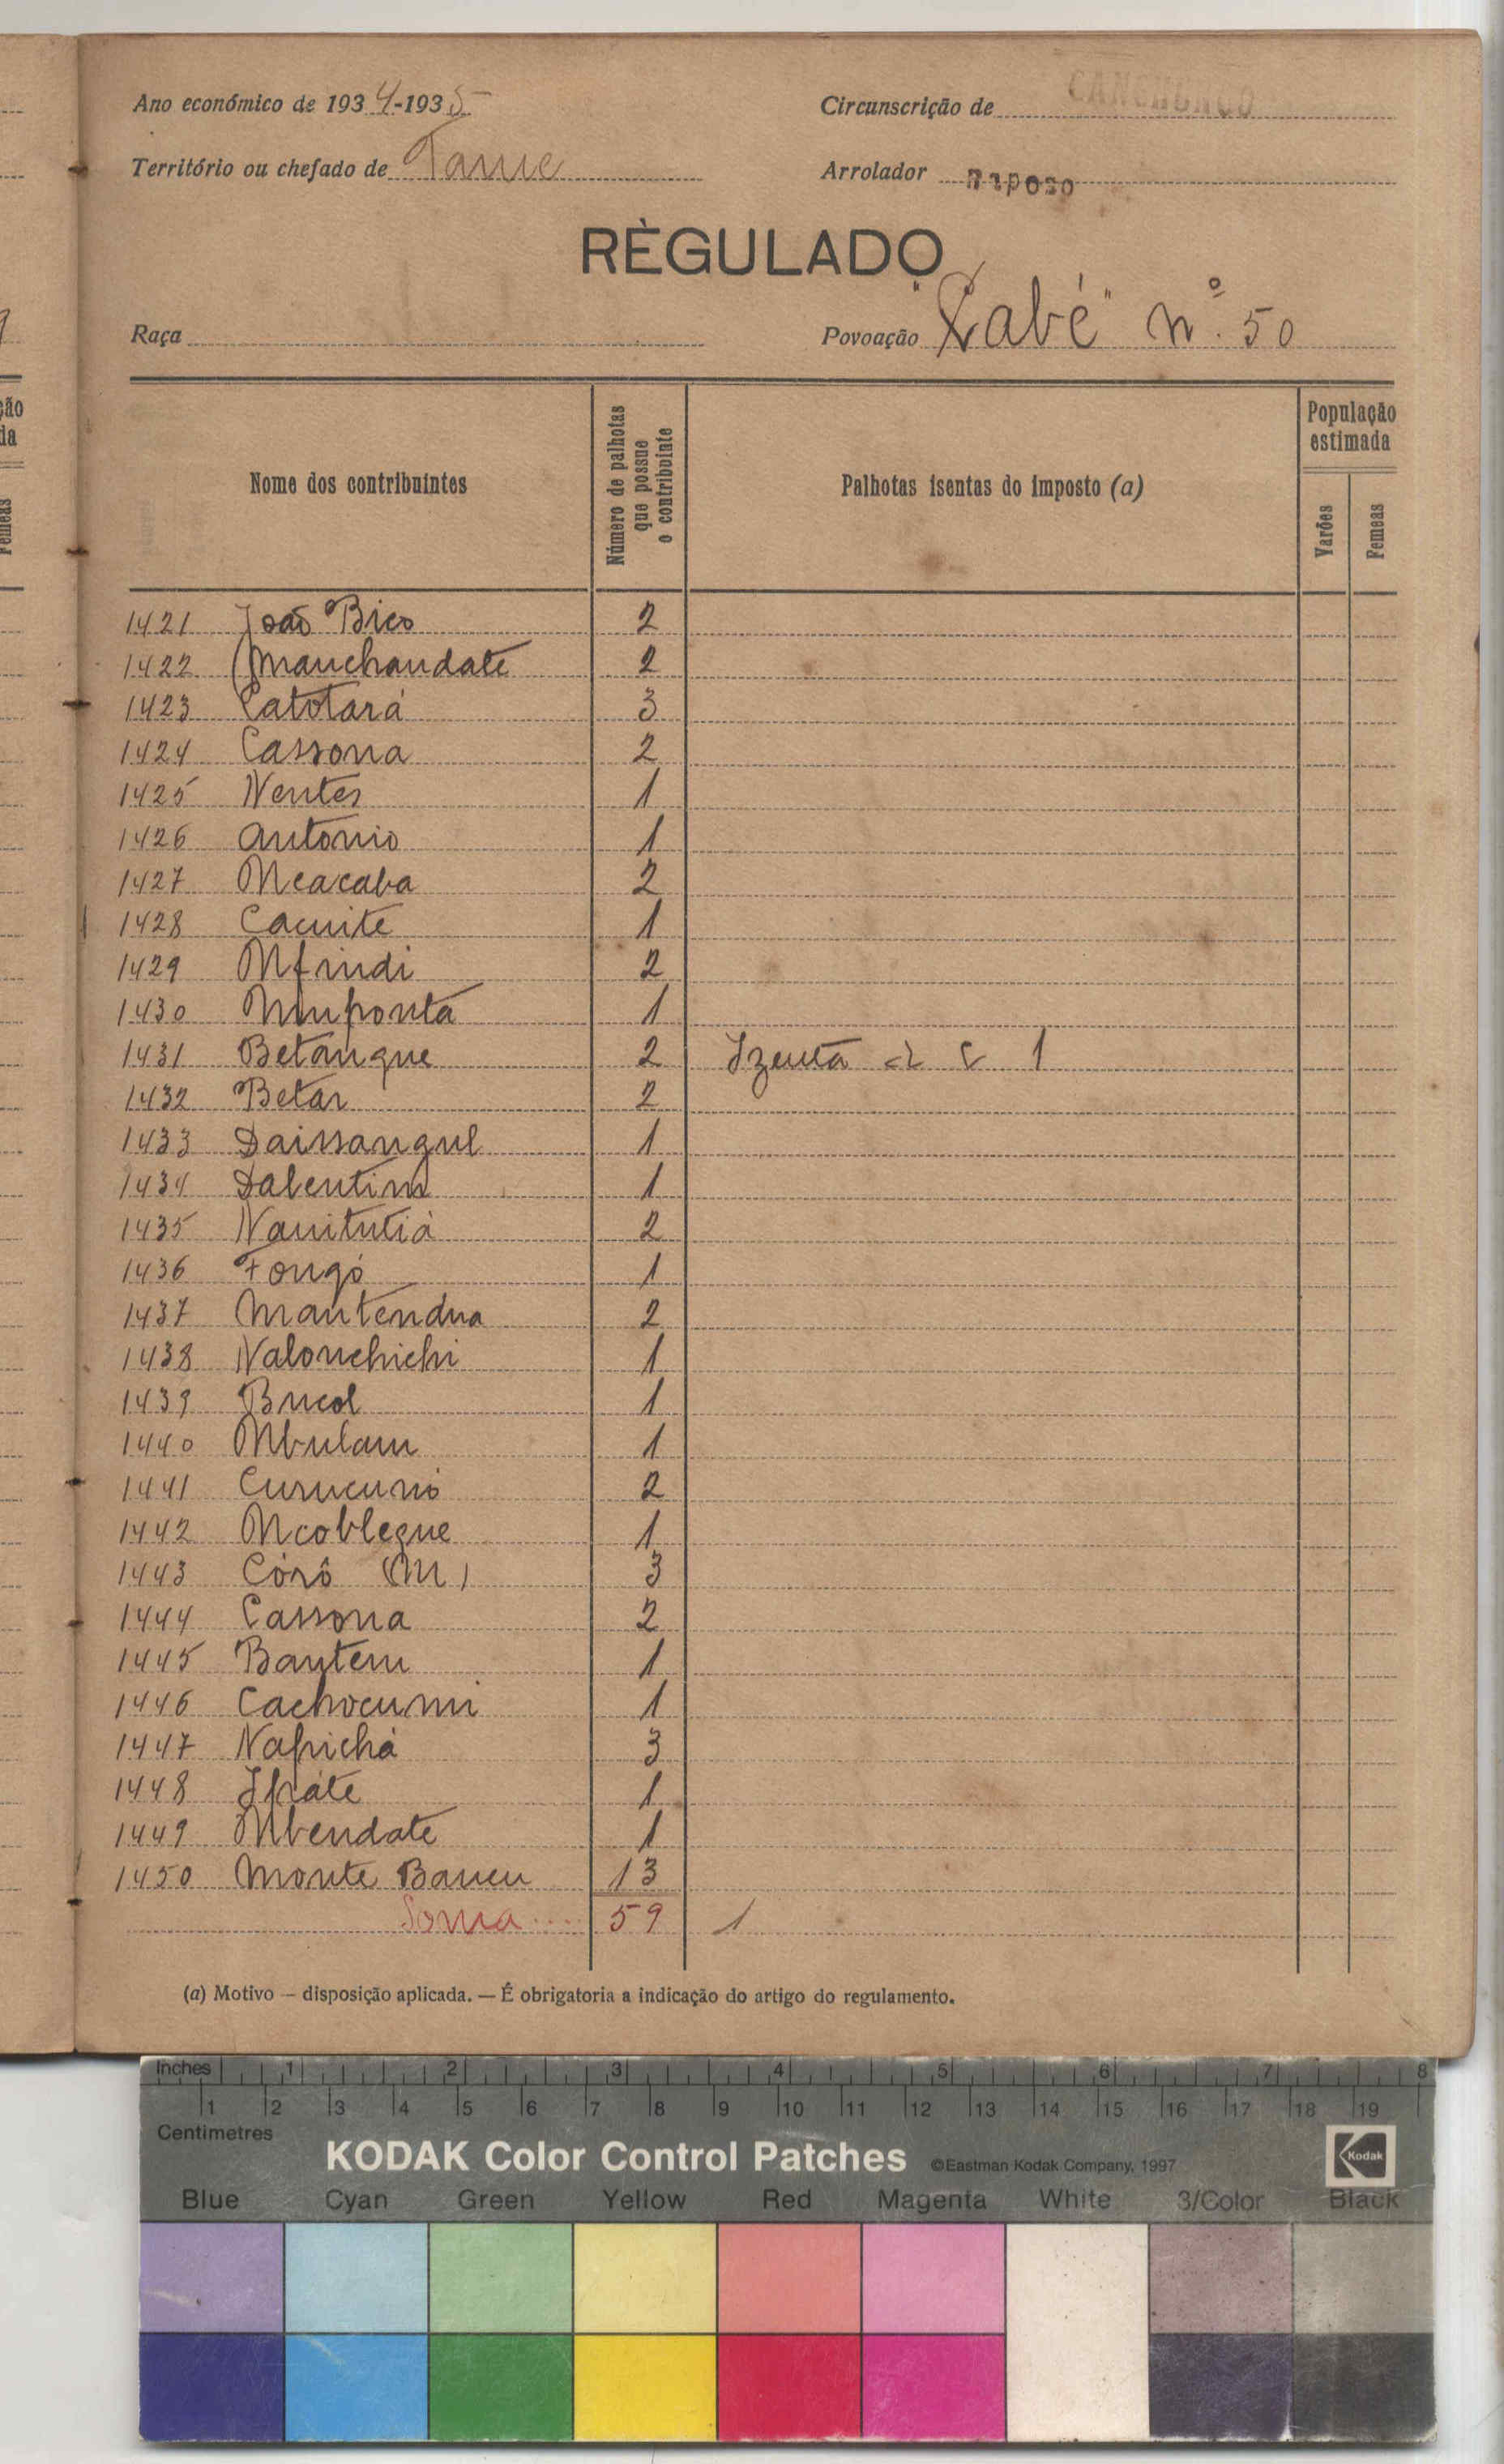 Ano económico de 1934-1935
Circunscrição de CANCHUNGO
Território ou chefado de Tame
Arrolador Raposo
RÈGULADO
Raça
Povoação "Labé" nº. 50
Nome dos contribuintes
Número de palhotas que possue o contribuinte
Palhotas isentas do imposto (a)
População estimada
Varões
Femeas
1421 João Bico 2
1422 Manchandate 2
1423 Catotará 3
1424 Cassona 2
1425 Nentes 1
1426 Antonio 1
1427 Mcacaba 2
1428 Cacuite 1
1429 Mfindi 2
1430 1
1431 Betanque 2 Izenta 1
1432 Betar 2
1433 Daissangul 1
1434 Dalentim 1
1435 Nanitutiá 2
1436 Fongó 1
1437 Mantendua 2
1438 Nalonchichi 1
1439 Bucol 1
1440 Mbulam 1
1441 Curucunó 2
1442 Mcoblegue 1
1443 Córô (M) 3
1444 Cassona 2
1445 Bantem 1
1446 Cachocumi 1
1447 Napichá 3
1448 Ipáte 1
1449 Mbendate 1
1450 Monte Baucu 13
Soma .... 59 1
(a) Motivo — disposição aplicada. — É obrigatoria a indicação do artigo do regulamento.
Inches 1 2 3 4 5 6 7 8
1 2 3 4 5 6 7 8 9 10 11 12 13 14 15 16 17 18 19
Centimetres
KODAK Color Control Patches ©Eastman Kodak Company, 1997 Kodak
Blue Cyan Green Yellow Red Magenta White 3/Color Black